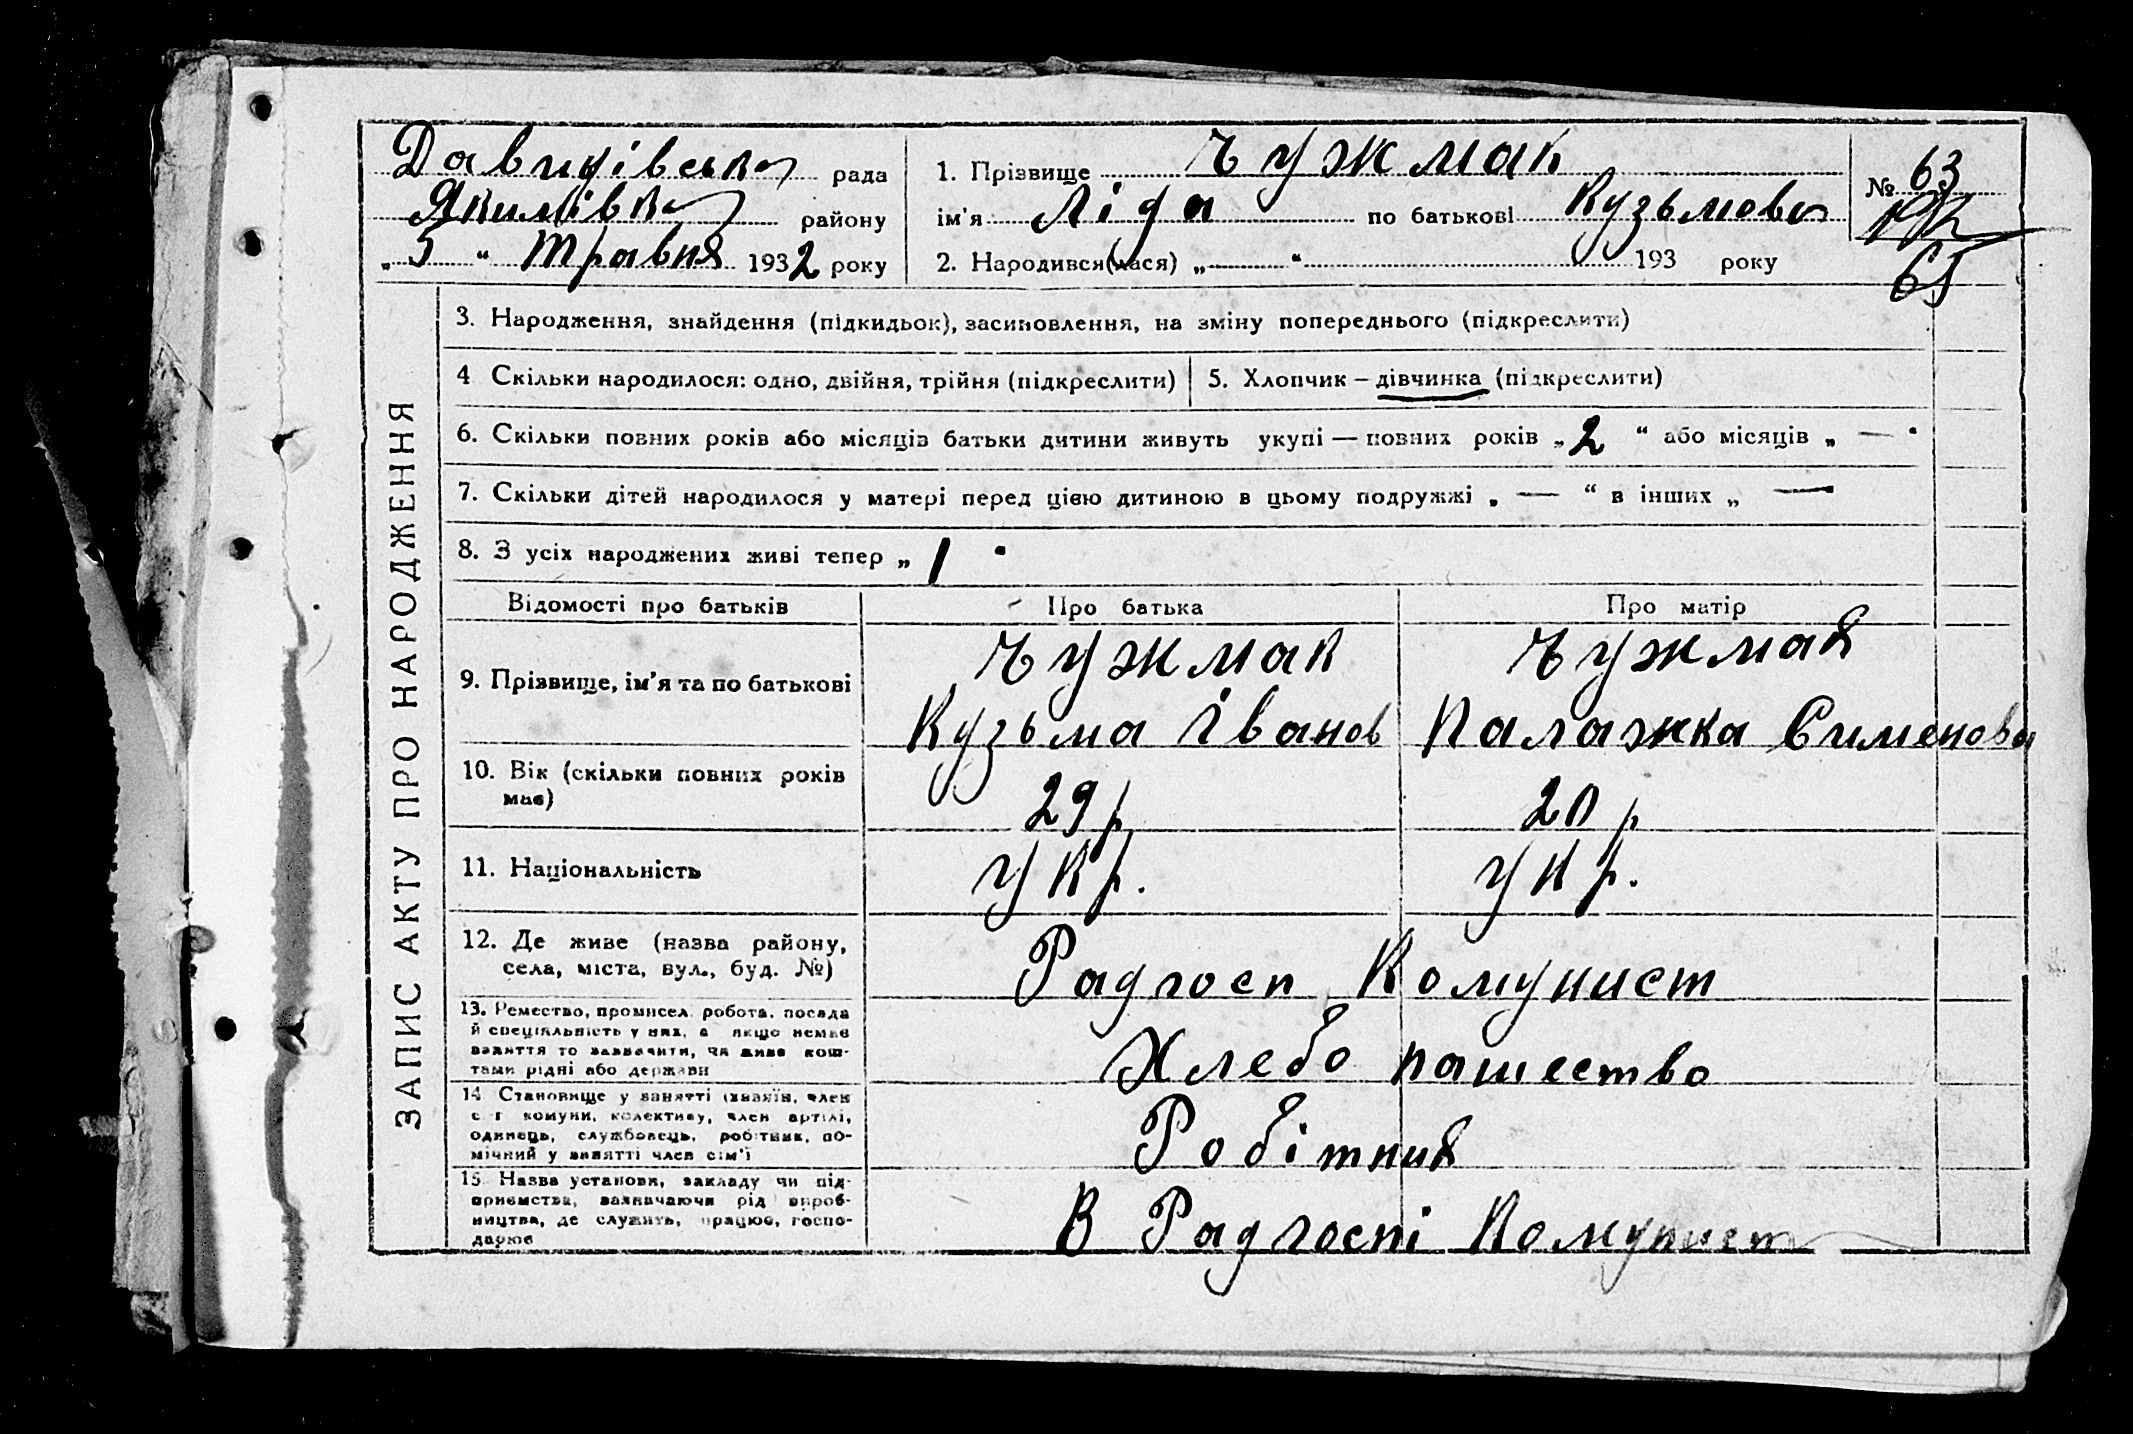 Давидівська рада
Якимівка району
„ 5 “ Травня 1932 року
1. Прізвище Чужмак
ім'я Ліда по батькові Кузьмова
2. Народився(лася) „ “ 193 року
№ 63
65
ЗАПИС АКТУ ПРО НАРОДЖЕННЯ
3. Народження, знайдення (підкидьок), засиновлення, на зміну попереднього (підкреслити)
4 Скільки народилося: одно, двійня, трійня (підкреслити)
5. Хлопчик – дівчинка (підкреслити)
6. Скільки повних років або місяців батьки дитини живуть укупі — повних років „ 2 “ або місяців „ — "
7. Скільки дітей народилося у матері перед цією дитиною в цьому подружжі „ — “ в інших „ —
8. З усіх народжених живі тепер „ 1 "
Відомості про батьків Про батька Про матір
9. Прізвище, ім'я та по батькові
Чужмак Чужмак
Кузьма Іванов Палажка Сименова
10. Вік (скільки повних років
має)
29 р 20 р
11. Національність укр. укр.
12. Де живе (назва району,
села, міста, вул., буд. №)
Радгосп Комунист
13. Ремество, промисел, робота, посада
й спеціяльність у них, а якщо немає
заняття то зазначити, чи живе кош-
тами рідні або держави
Хлебо пашество
14 Становище у занятті (хазяїн, член
с.-г комуни, колективу, член артілі,
одинець, службовець, робітник, по-
мічний у занятті член сім'ї
Робітник
15 Назва установи, закладу чи під-
приємства, зазначаючи рід вироб-
ництва, де служить, працює, госпо-
дарює
В Радгоспі Комунист